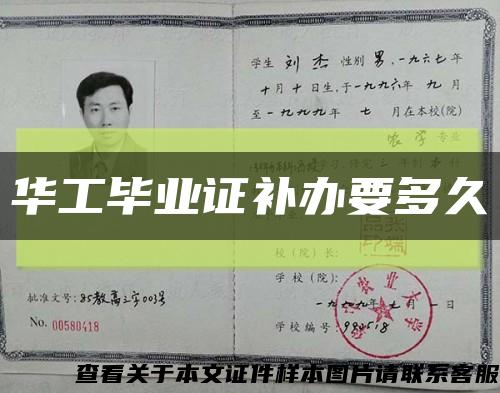 学生 刘杰 性别 男,一九六七年
十月十日生,于一九九六年 九月
至一九九九年 七月在本校(院)
农学 专业
学习,修完三年制本科
华工毕业证补办要多久
校(院)长:
张瑞品印
学校(院):
批准文号:85教高三字003号
一九九九年七月一日
No. 00580418
学校编号:990518
农业大学
查看关于本文证件样本图片请联系客服